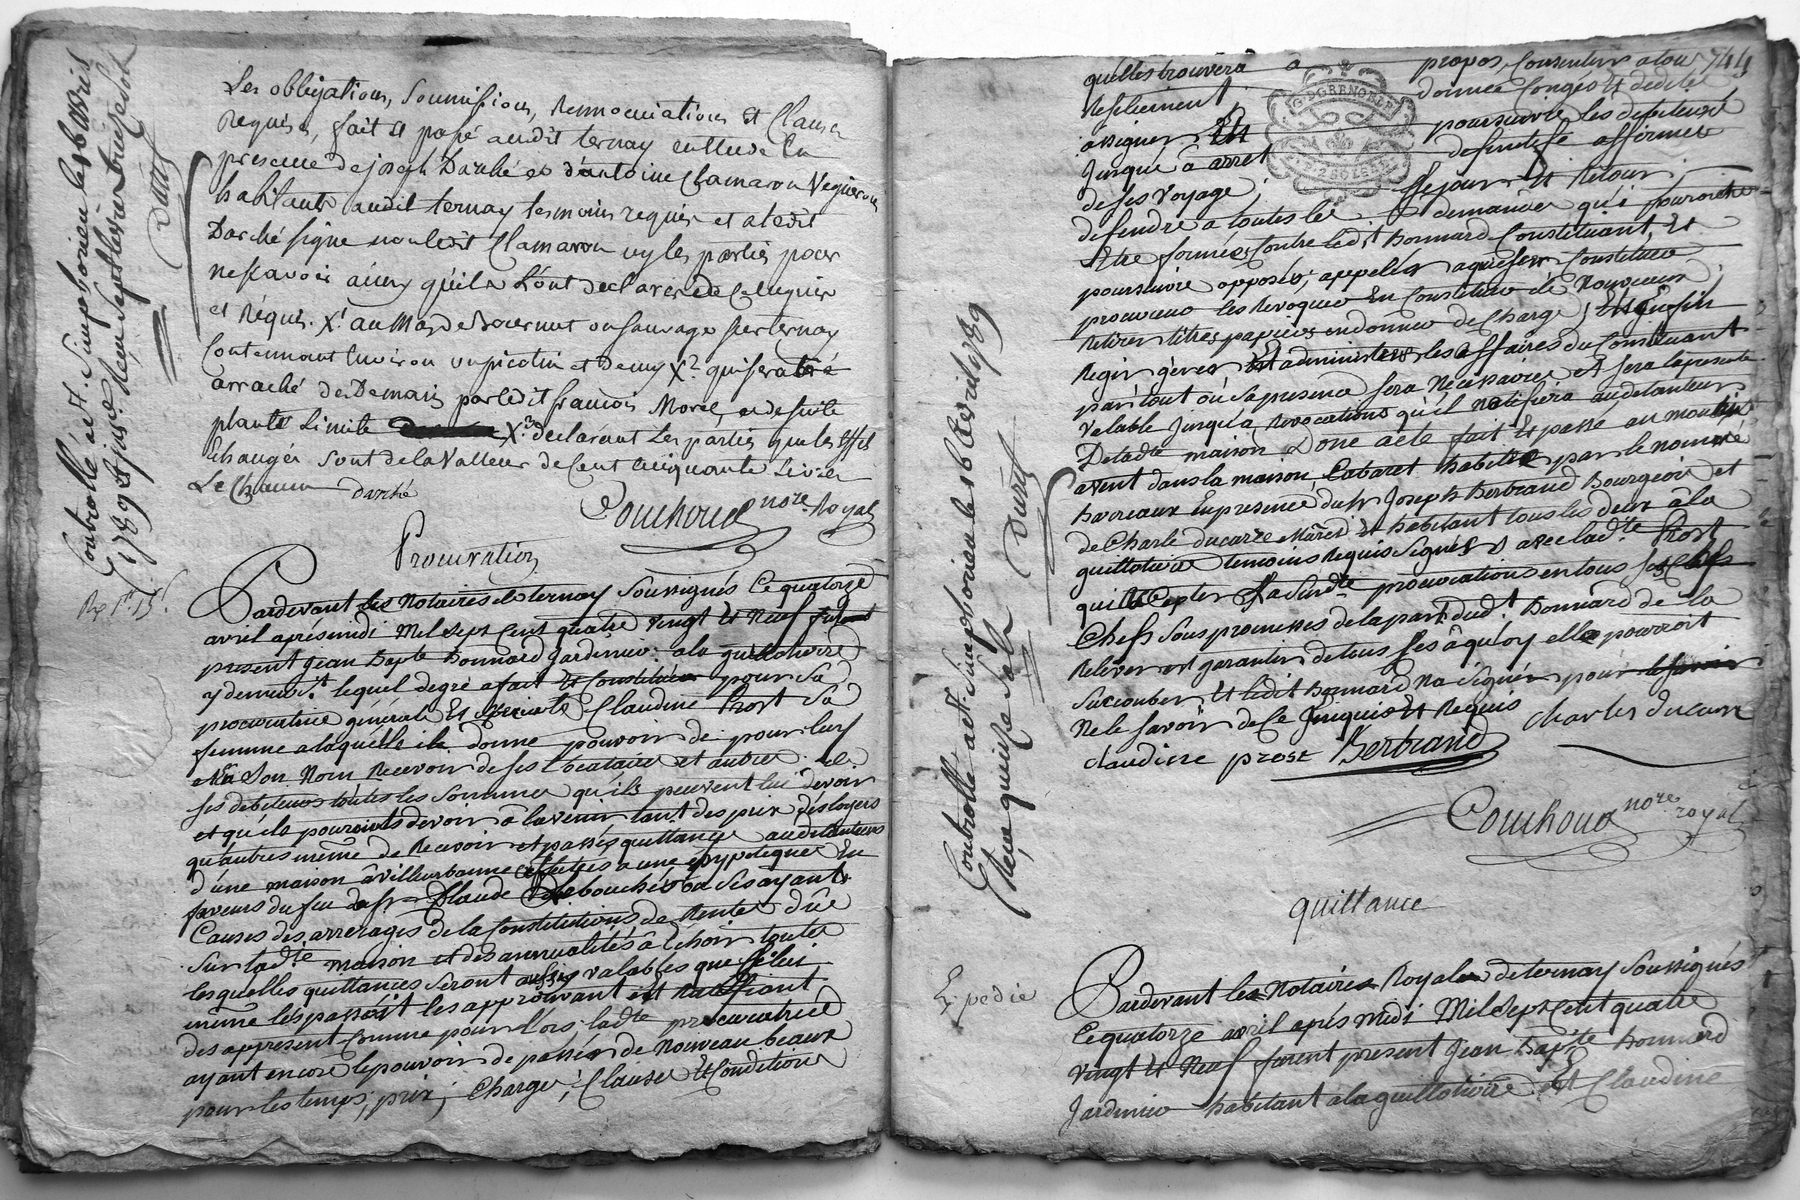 Les obligations, soumissions, rennonciations et clauses
requises, fait et passé audit ternay en l'etude En
presence de joseph Darché et d'antoine Clamaron Vigneron
habitants audit ternay temoins requis et a ledit
Darché signé non ledit Clamaron ny les parties pour
ne scavoir ainsy qu'ils l'ont declaré de ce enquis
et Réquis. X.1 au Mas de ou sauvage sur ternay
Contennant Environ un picotin et demy X.2 qui sera
arraché des Demain par ledit françois Morel, et de suite
planté Limite X.3 declarant Les parties que les effets
Echangés sont de la Valleur de Cent cinquante Livres
Le Chacun Darché
Couchoud nore. Royal
Procuration
Pardevant Les Notaires de ternay Soussignés Ce quatorze
avril aprés midi Mil Sept Cent quatre vingt Et Neuf fut
present Jean Bapte Bonnard Jardinier à la guillotiere
y demeurt. lequel de gré a fait Et Constitué pour Sa
procuratrice générale Et Speciale Claudine Prost Sa
femme a laquelle il donne pouvoir de pour luy
et En Son Nom Recevoir de ses locataires et autres
ses debiteurs toutes les Sommes qu'ils peuvent lui devoir
et qu'ils pourroient devoir à l'avenir tant des prix des loyers
qu'autres même de Recevoir et passer quittance aux detenteurs
d'une maison à villeurbanne affectés a une hyppoteque En
faveur du feu Sr Claude ou Ses ayants
Causes des arrerages de la Constitution de Rente düe
Sur ladte maison et des annualités à Echoir toutes
lesquelles quittances seront aussy valables que s'il lui
même les passoit les approuvant Et Ratifiant
des appresent Comme pour l'ors; ladte procuratrice
ayant encore le pouvoir de passer de Nouveau beaux
pour les temps, prix, Charge, Clauses Et Conditions
Controllé à St. Simphorien le 16 avril
1789 Reçu Sept livres dix sols
Duret
744
G. DE GRENOBLE
quelles trouvera à propos, Consentir a tous
Resiliement, donner Congés Et dedites
assigner Et poursuivre les debiteurs
Jusque à arret definitif affirmer
de ses voyage Sejour Et Retour;
defendre a toutes les demandes qui pourroient
Etre formées Contre ledit Bonnard Constituant, Et
poursuivre opposer, appeler aquiesser Constituer
procureur les Revoquer En Constituer de Nouveaux
Retirer titres papiers en donner decharge, Et Enfin
Regir gérer Et administrer les affaires du Constituant
partout où sa presence sera Nécéssaire Et sera la presente
Valable Jusqu'à Revocation qu'il Notifiera aux detenteurs
De ladte maison. Donc acte fait Et passé au
avent dans la maison Cabaret habitée par le nommé
Barreaux En presence du Sr Joseph Bertrand Bourgeois et
de Charle ducarre Mared Et habitant tous les deux à la
guillotiere temoins Requis Signés avec ladte Prost
qui accepter procuration en tous Ses Chefs
Chefs Sous promesses de la part dudt Bonnard de la
Relever et garantir de tous ses à quoy elle pourroit
Succomber Et ledit Bonnard N'a signer pour
Ne le savoir de Ce Enquis Et Requis
claudine prost Bertrand Charles ducarre
Couchoud nore royal
Controllé à St. Simphorien le 16 avril 1789
Reçu quinze sols Duret
quittance
Expedié
Pardevant les Notaires Royaux de ternay Soussignés
Ce quatorze avril aprés midi Mil Sept Cent quatre
vingt Et Neuf furent present Jean Bapte Bonnard
Jardinier habitant a la guillotiere Et Claudine